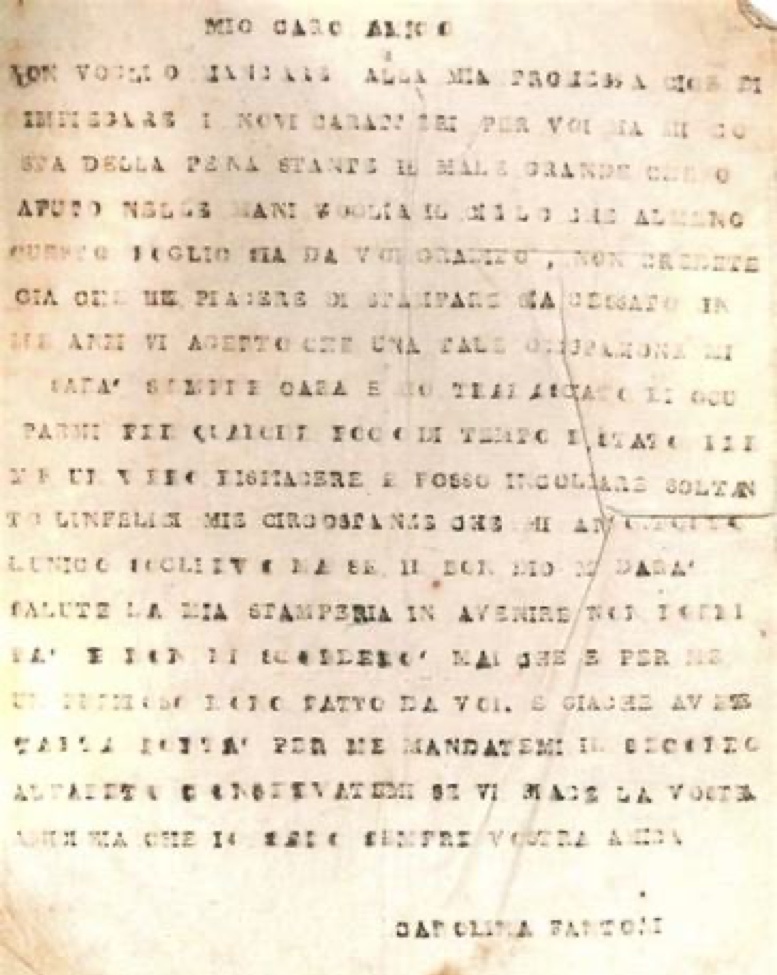 MIO CARO AMICO
NON VOGLIO MANCARE ALLA MIA PROMESSA CIOE DI
IMPIEGARE I NOVI CARATTERI PER VOI MA MI CO
STA DELLA PENA STANTE IL MALE GRANDE CHE O
AVUTO NELLE MANI VOGLIA IL CIELO CHE ALMENO
QUESTO FOGLIO SIA DA VOI GRADITO, NON CREDETE
GIA CHE IL PIACERE DI STAMPARE SIA CESSATO IN
ME ANZI VI ACETTO CHE UNA TALE MI
SARA' SEMPRE CARA E SO TRALASCATO DI OCU
PARMI PER QUALCHE POCO DI TEMPO E STATO PER
ME UN VERO DISPIACERE E POSSO INCOLPARE SOLTAN
TO LINFELICI MIE CIRCOSTANZE CHE MI AN
LUNICO SOGLIEVO MA SE IL BON DIO MI DARA'
SALUTE LA MIA STAMPERIA IN AVENIRE NON
RA' E NON MI SCORDERO' MAI CHE E PER ME
UN PREZIOSO DONO FATTO DA VOI. E GIACHE AVETE
TANTA BONTA' PER ME MANDATEMI IL SECONDO
ALFABETO CONSERVATEMI SE VI PIACE LA VOSTRA
AMICIZIA CHE IO SARO SEMPRE VOSTRA AMICA
CAROLINA FANTONI